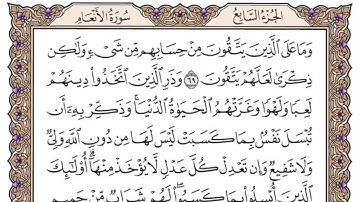 سُورَةُ الأَنْعَامِ الجُزْءُ السَّابِعُ
وَمَا عَلَى ٱلَّذِينَ يَتَّقُونَ مِنْ حِسَابِهِم مِّن شَىْءٍ وَلَٰكِن
ذِكْرَىٰ لَعَلَّهُمْ يَتَّقُونَ ٦٩ وَذَرِ ٱلَّذِينَ ٱتَّخَذُوا۟ دِينَهُمْ
لَعِبًا وَلَهْوًا وَغَرَّتْهُمُ ٱلْحَيَوٰةُ ٱلدُّنْيَا ۚ وَذَكِّرْ بِهِۦٓ أَن
تُبْسَلَ نَفْسٌۢ بِمَا كَسَبَتْ لَيْسَ لَهَا مِن دُونِ ٱللَّهِ وَلِىٌّ
وَلَا شَفِيعٌ وَإِن تَعْدِلْ كُلَّ عَدْلٍ لَّا يُؤْخَذْ مِنْهَآ ۗ أُو۟لَٰٓئِكَ
ٱلَّذِينَ أُبْسِلُوا۟ بِمَا كَسَبُوا۟ ۖ لَهُمْ شَرَابٌ مِّنْ حَمِيمٍ